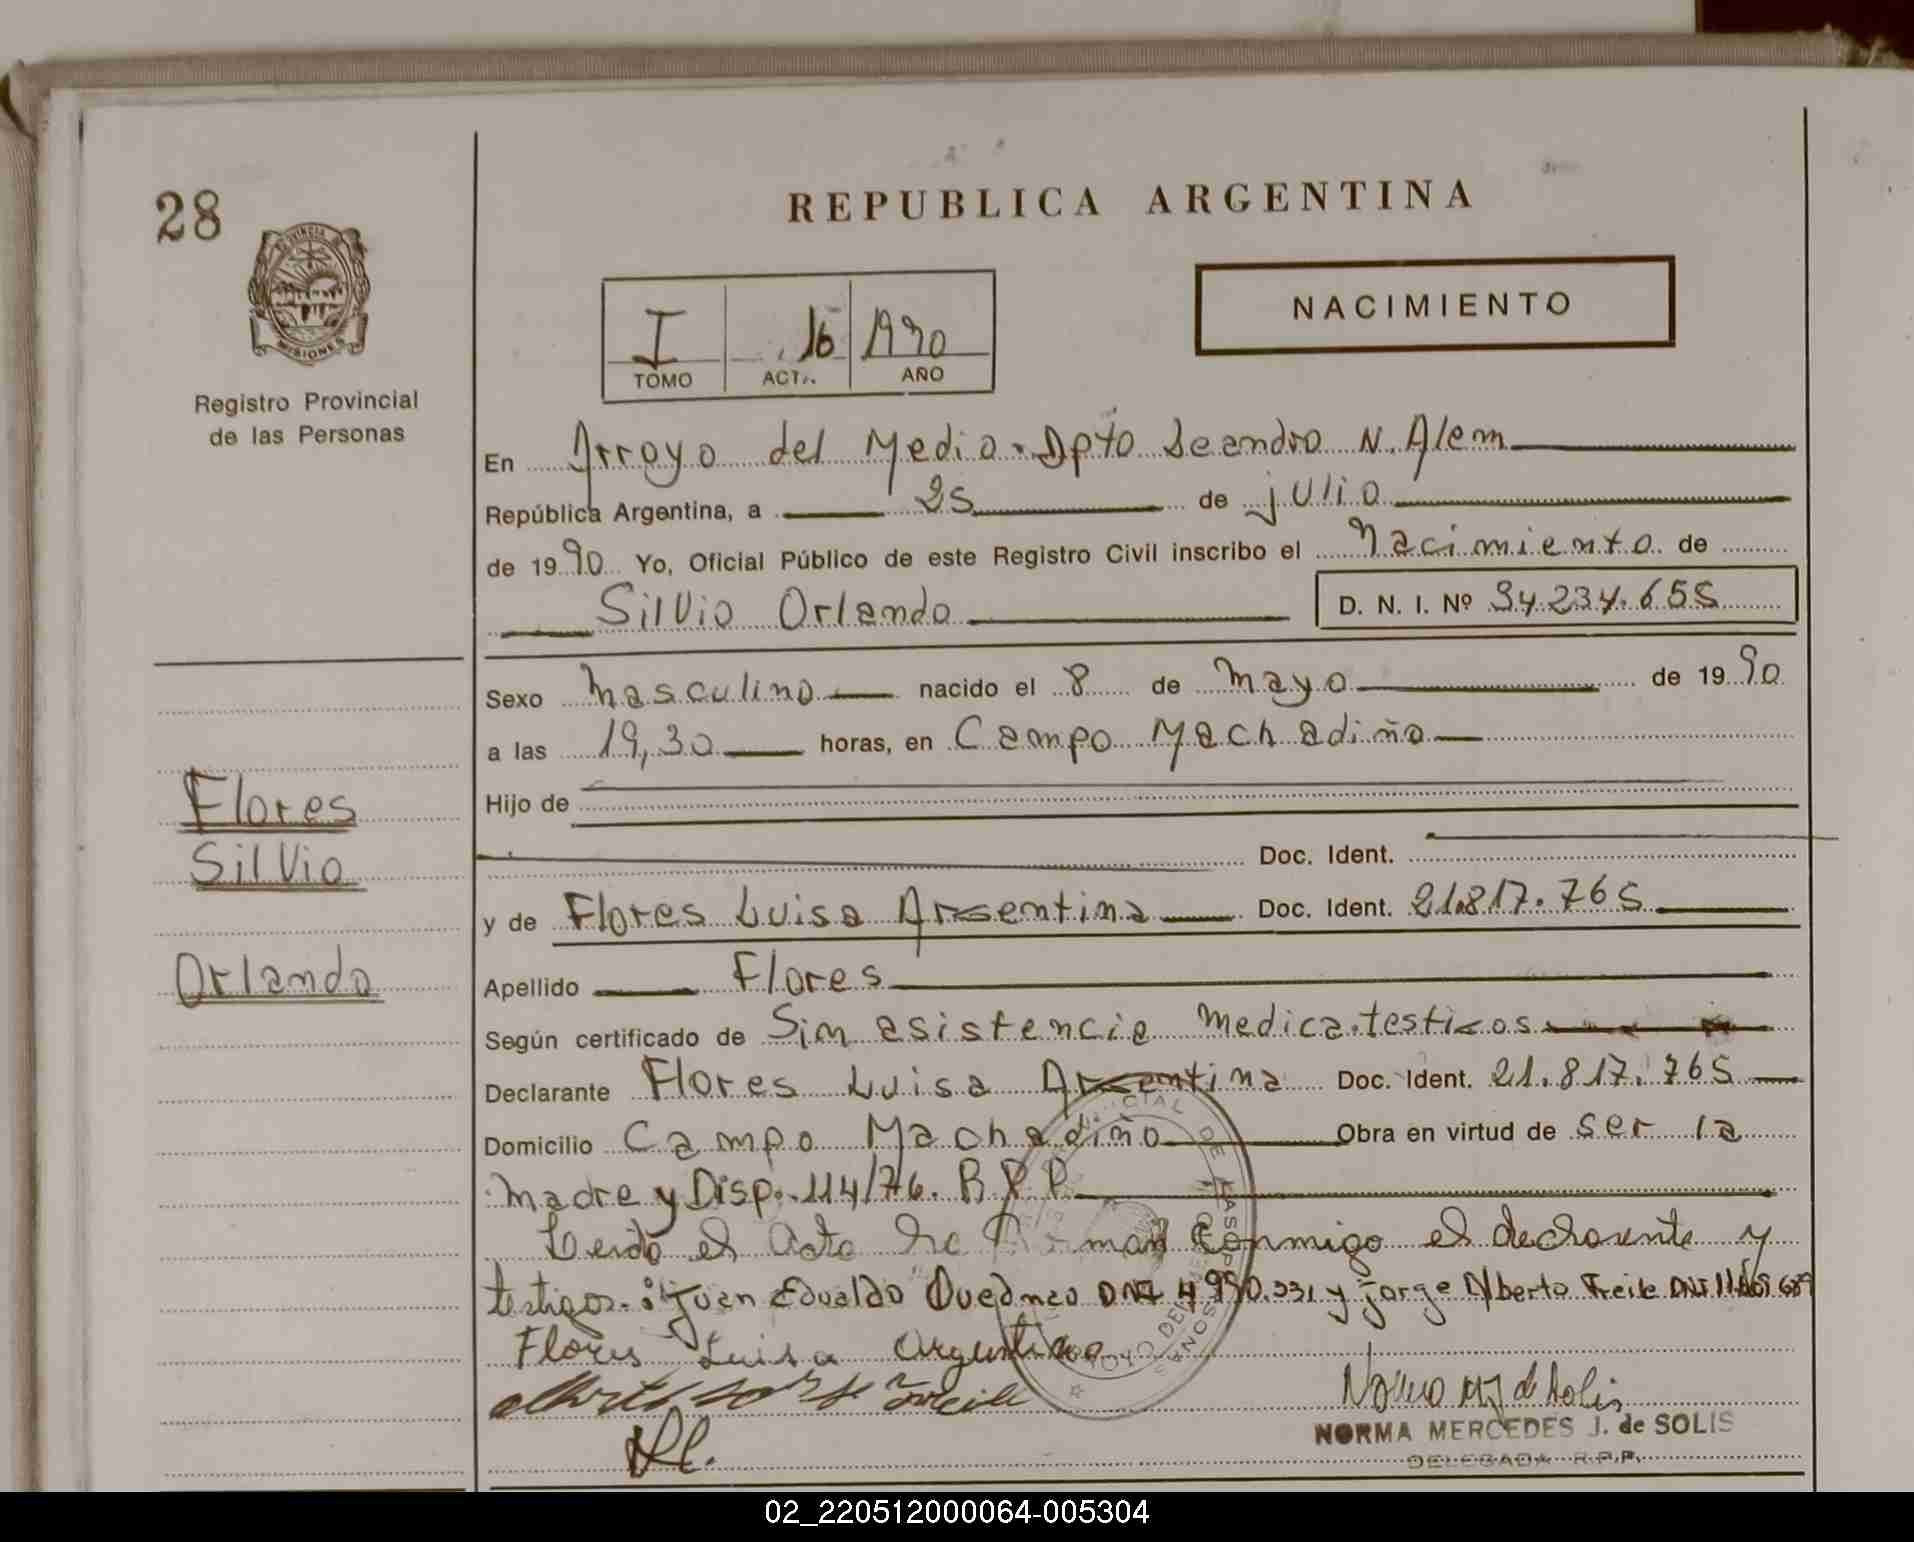 28
REPUBLICA ARGENTINA
PROVINCIA DE
MISIONES
Registro Provincial
de las Personas
I 16 1990
TOMO ACTA AÑO
NACIMIENTO
En Arroyo del Medio. Dpto Leandro N. Alem
República Argentina, a 25 de julio
de 1990 Yo, Oficial Público de este Registro Civil inscribo el Nacimiento de
Silvio Orlando D. N. I. Nº 34.234.655
Sexo Masculino nacido el 8 de Mayo de 1990
a las 19,30 horas, en Campo Machadiño
Hijo de
Doc. Ident.
y de Flores Luisa Argentina Doc. Ident. 21.817.765
Apellido Flores
Según certificado de Sin asistencia Medica.testigos
Declarante Flores Luisa Argentina Doc. Ident. 21.817.765
Domicilio Campo Machadiño Obra en virtud de ser la
Madre y Disp. 114/76. R.P.P.
Leido el Acta la firman conmigo el declarante y
testigos.: Juan Edualdo DNI 4.990.331 y Jorge Alberto Freile DNI
Flores Luisa Argentina
Norma M J de Solis
NORMA MERCEDES J. de SOLIS
DELEGADA R.P.P.
Flores
Silvio
Orlando
02_220512000064-005304